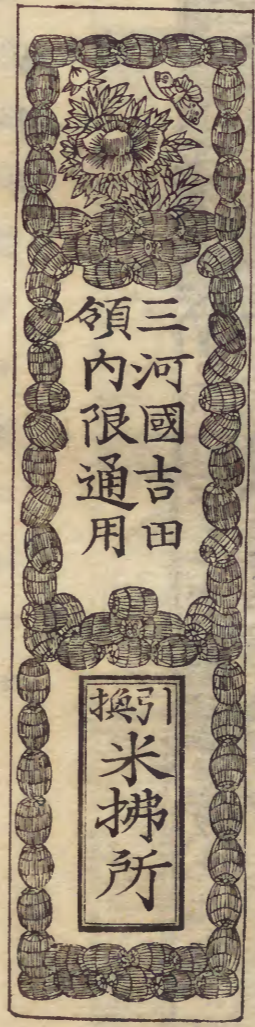 三河國吉田
領内限通用
引換
米拂所